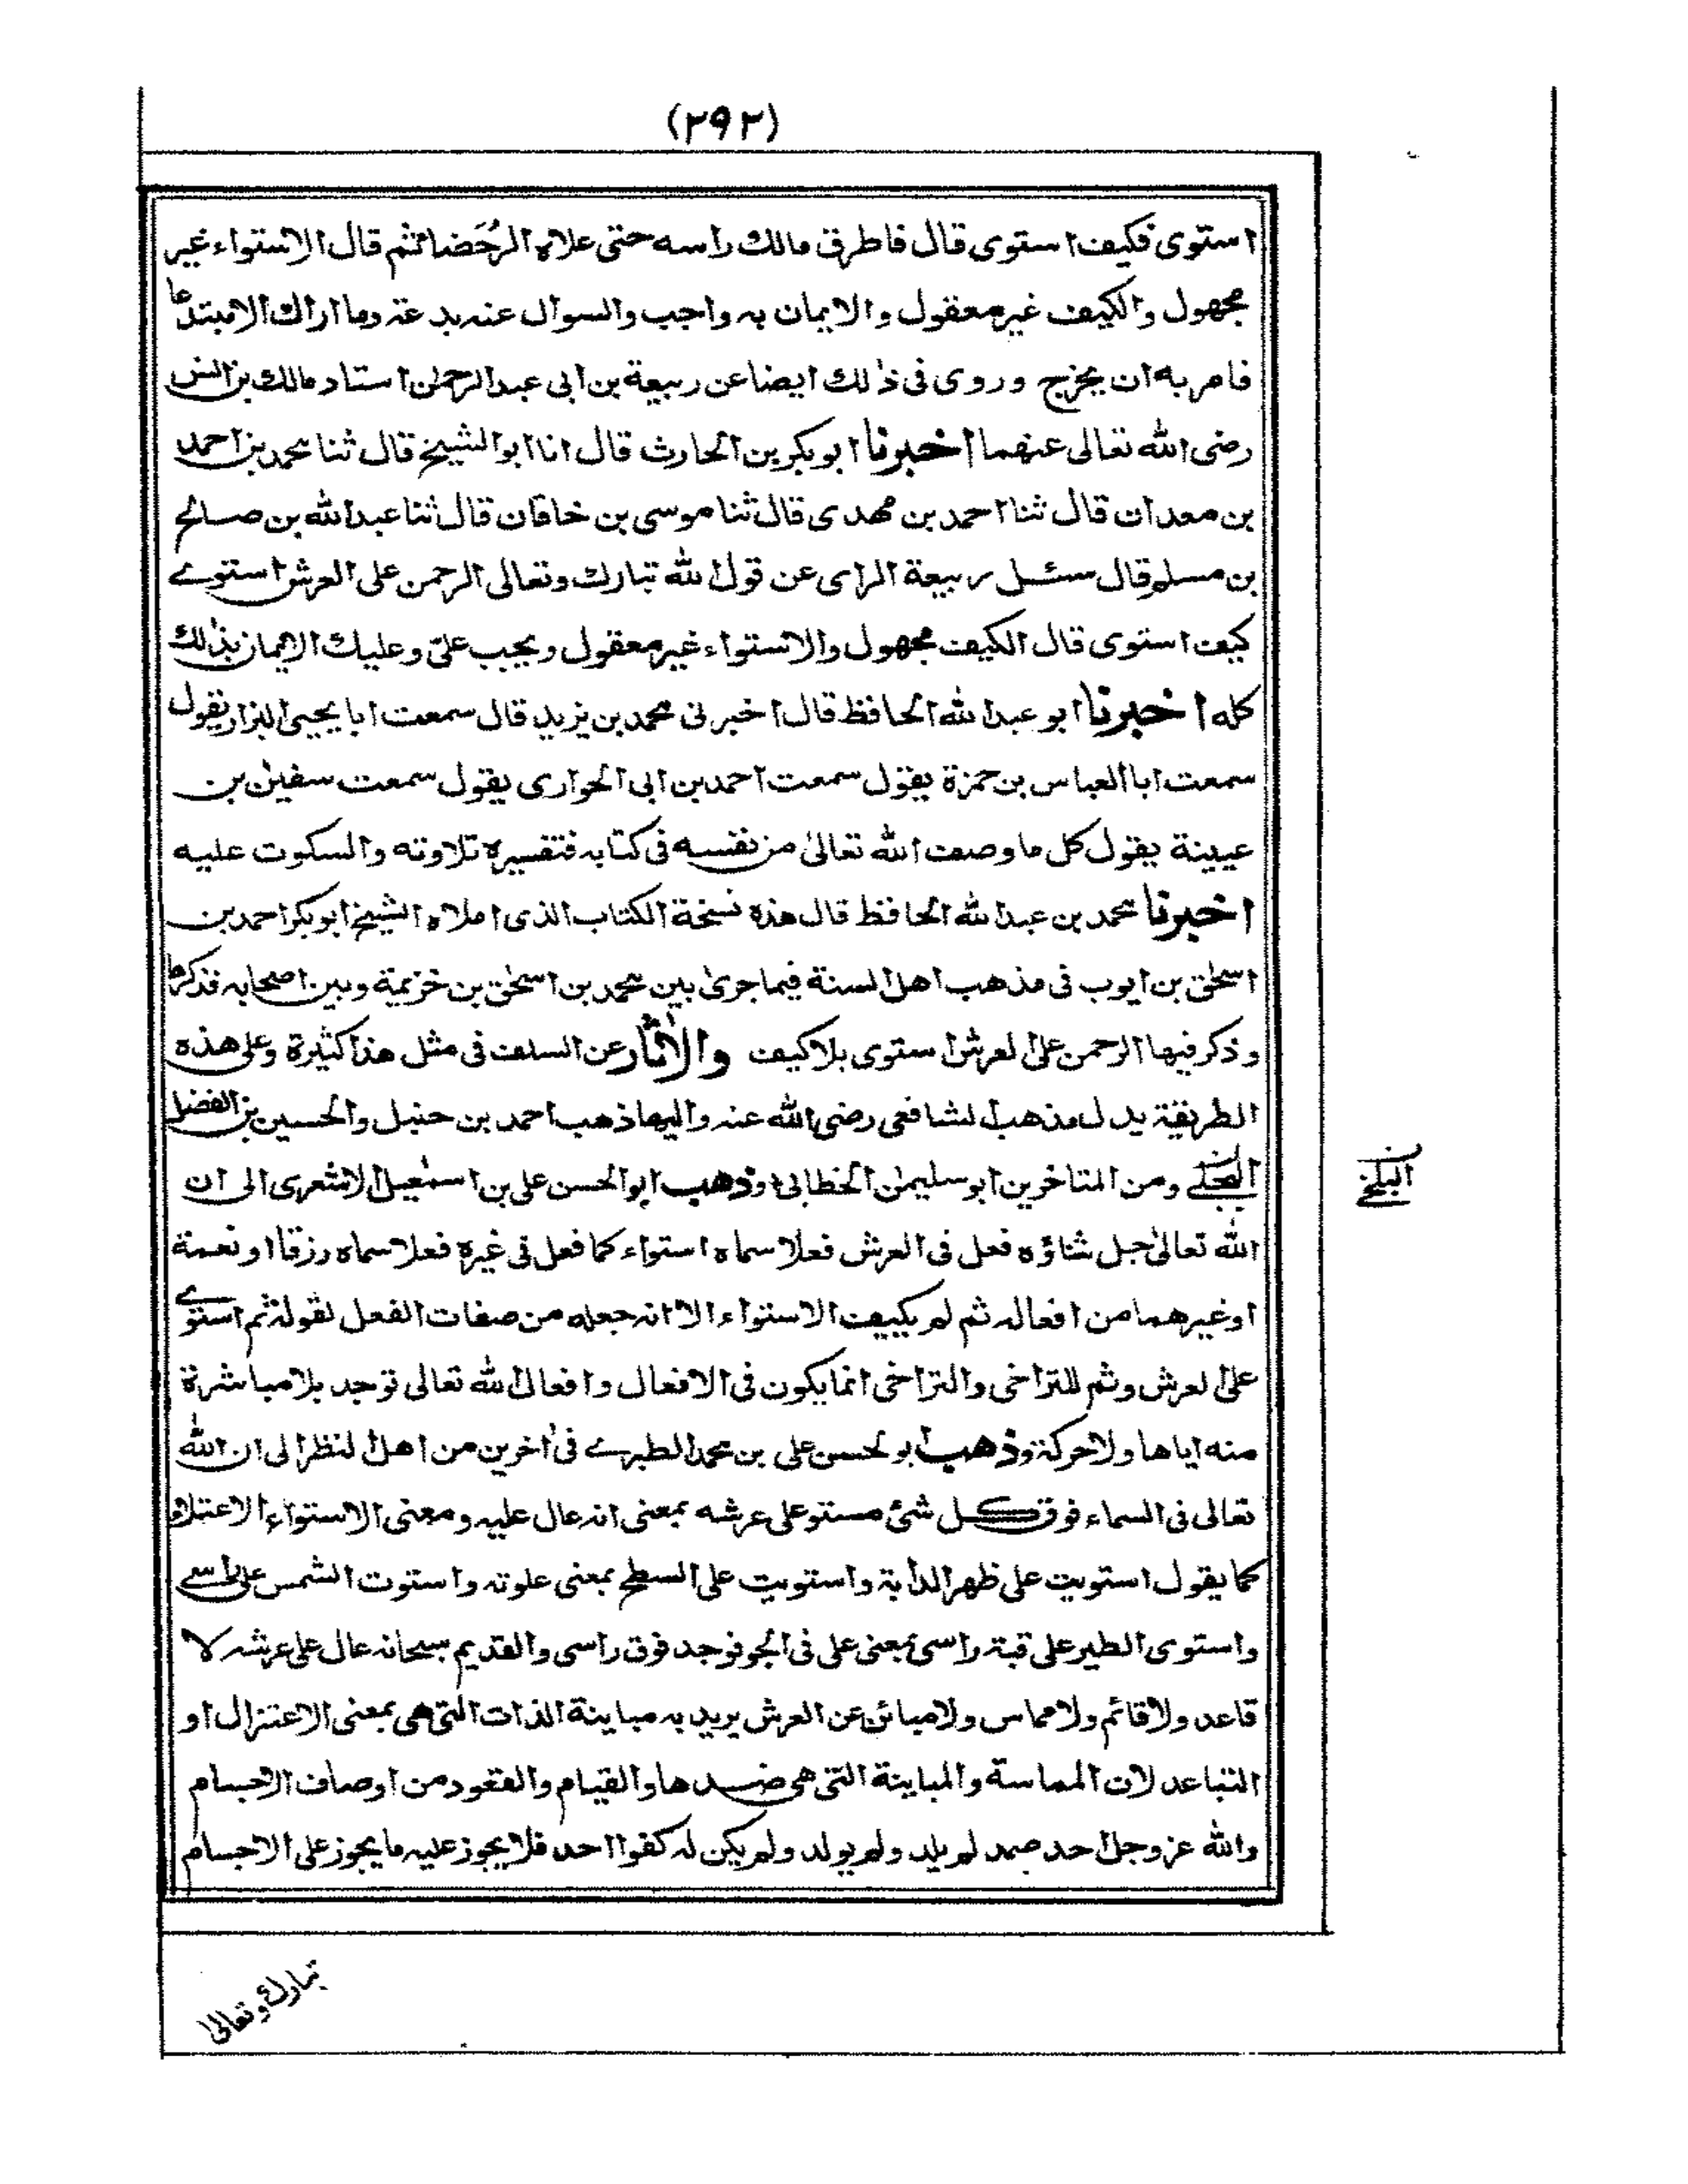 (۲۹۲)
استوى فكيف استوى قال فاطرق مالك راسه حتى علاه الرُّحَضاء ثم قال الاستواء غير
مجهول والكيف غير معقول والايمان به واجب والسوال عنه بدعة وما اراك الا مبتدعا
فامر به ان يخرج وروى فى ذلك ايضا عن ربيعة بن ابى عبد الرحمٰن استاد مالك بن انس
رضى الله تعالى عنهما اخبرنا ابو بكر بن الحارث قال انا ابو الشيخ قال ثنا محمد بن احمد
بن معدان قال ثنا احمد بن مهدى قال ثنا موسى بن خاقان قال ثنا عبد الله بن صالح
بن مسلم قال سئل ربيعة الراى عن قول الله تبارك وتعالى الرحمن على العرش استوے
كيف استوى قال الكيف مجهول والاستواء غير معقول ويجب علىّ وعليك الايمان بذٰلك
كله اخبرنا ابو عبد الله الحافظ قال اخبرنى محمد بن يزيد قال سمعت ابا يحيىٰ البزاز يقول
سمعت ابا العباس بن حمزة يقول سمعت احمد بن ابى الحوارى يقول سمعت سفيٰن بن
عيينة يقول كل ما وصف الله تعالىٰ من نفسه فى كتابه فتفسيره تلاوته والسكوت عليه
اخبرنا محمد بن عبد الله الحافظ قال هذه نسخة الكتاب الذى املاه الشيخ ابو بكر احمد بن
اسحٰق بن ايوب فى مذهب اهل السنة فيما جرىٰ بين محمد بن اسحٰق بن خزيمة وبين اصحابه فذكرها
وذكر فيها الرحمن على العرش استوى بلا كيف والاٰثار عن السلف فى مثل هذا كثيرة وعلى هذه
الطريقة يدل مذهب الشافعى رضى الله عنه واليها ذهب احمد بن حنبل والحسين بن الفضل
البجلے ومن المتاخرين ابو سليمٰن الخطابى وذهب ابو الحسن على بن اسمٰعيل الاشعرى الى ان
البلخے
الله تعالىٰ جل شناؤه فعل فى العرش فعلا سماه استواء كما فعل فى غيره فعلا سماه رزقا او نعمة
او غيرهما من افعاله ثم لم يكيف الاستواء الا انه جعله من صفات الفعل لقوله ثم استوے
على العرش وثم للتراخى والتراخى انما يكون فى الافعال وافعال الله تعالى توجد بلا مباشرة
منه اياها ولا حركة وذهب ابو لحسن على بن محمد الطبرے فى اٰخرين من اهل النظر الى ان الله
تعالى فى السماء فوق كل شئ مستو على عرشه بمعنى انه عال عليه ومعنى الاستواء الاعتلاء
كما يقول استويت على ظهر الدابة واستويت على السطح بمعنى علوته واستوت الشمس على راسے
واستوى الطير على قبة راسى بمعنى على فى الجو فوجد فوق راسى والقديم سبحانه عال على عرشه لا
قاعد ولا قائم ولا مماس ولا مبائن عن العرش يريد به مباينة الذات التى هى بمعنى الاعتزال او
التباعد لان المماسة والمباينة التى هى ضدها والقيام والقعود من اوصاف الاجسام
والله عز وجل احد صمد لم يلد ولم يولد ولم يكن له كفوا احد فلا يجوز عليه ما يجوز على الاجسام
تبارك وتعالى